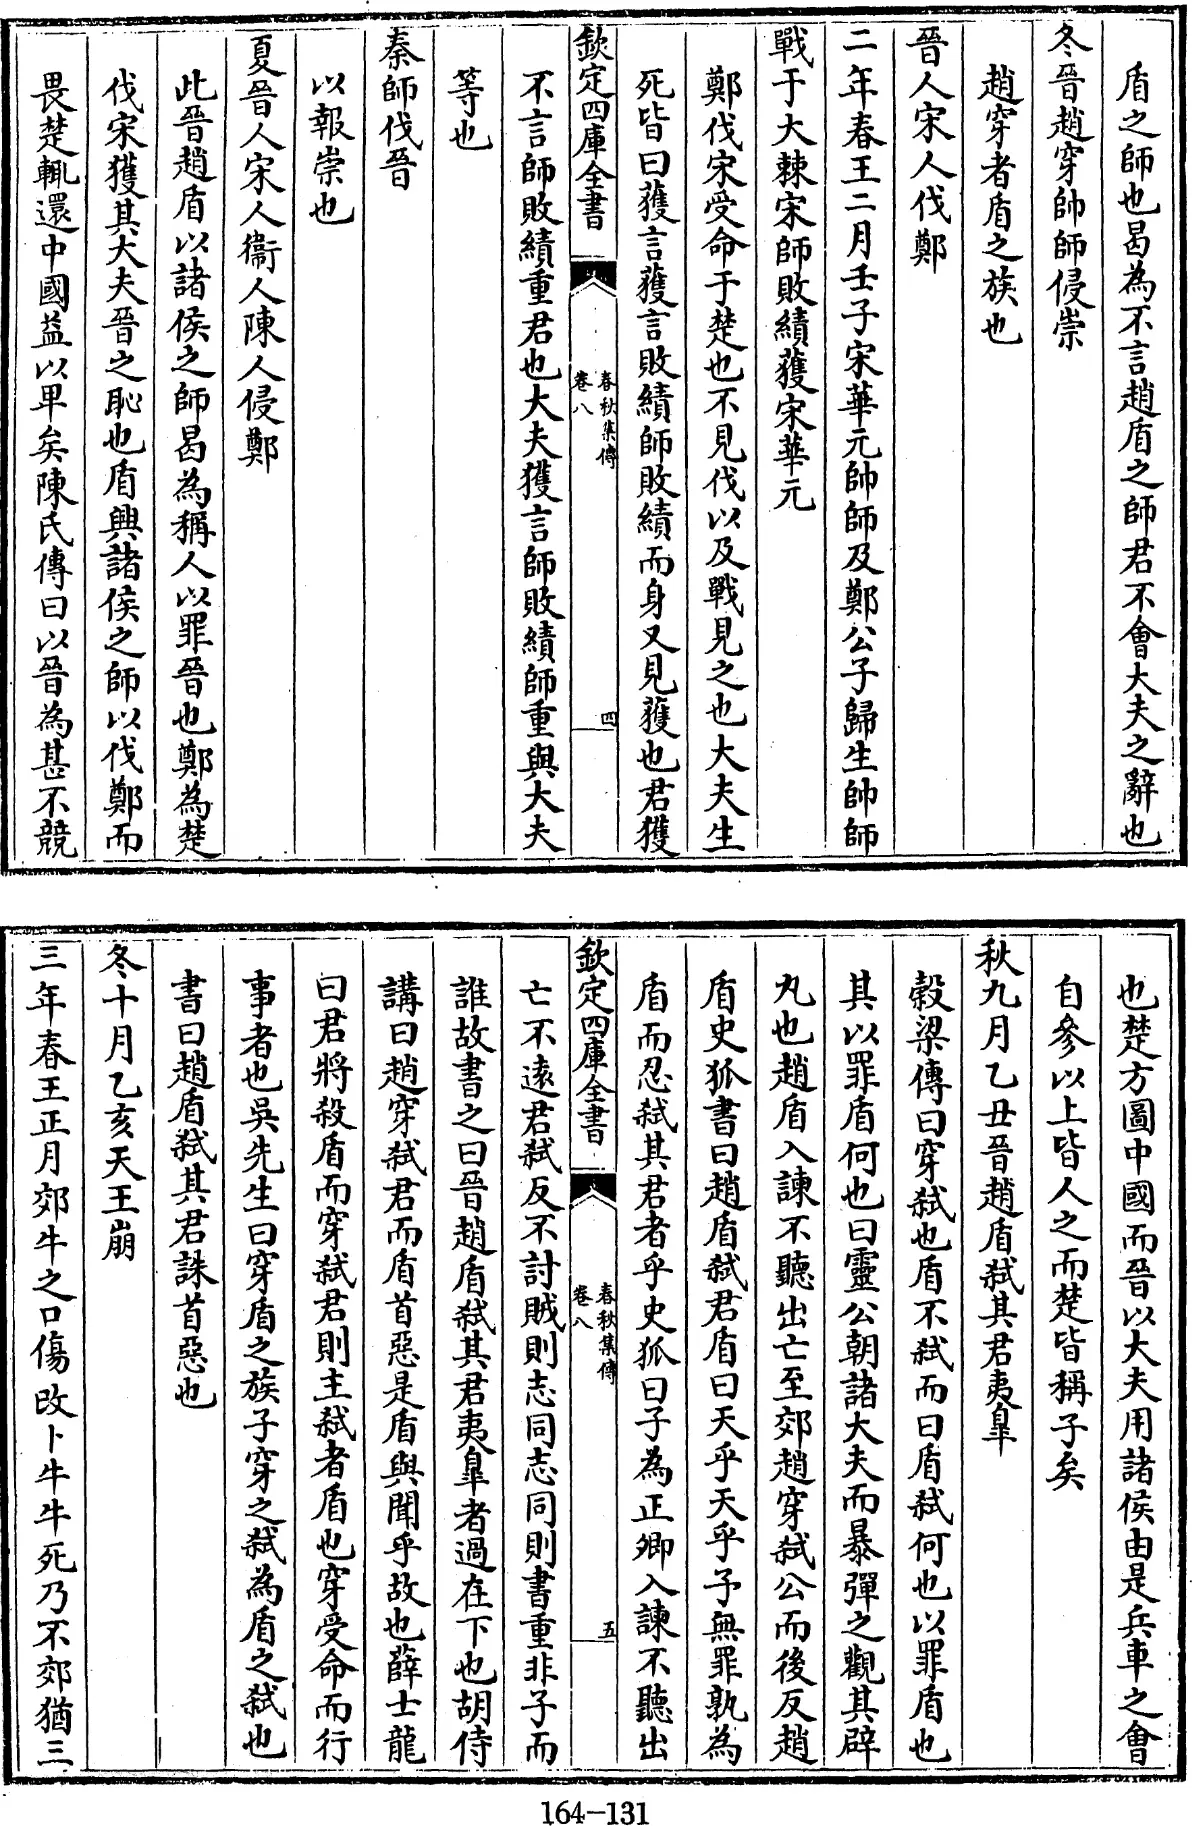 盾之師也曷為不言趙盾之師君不會大夫之辭也
冬晉趙穿帥師侵崇
趙穿者盾之族也
晉人宋人伐鄭
二年春王二月壬子宋華元帥師及鄭公子歸生帥師
戰于大棘宋師敗績獲宋華元
鄭伐宋受命于楚也不見伐以及戰見之也大夫生
死皆曰獲言獲言敗績師敗績而身又見獲也君獲
欽定四庫全書
春秋集傳
卷八
四
不言師敗績重君也大夫獲言師敗績師重與大夫
等也
秦師伐晉
以報崇也
夏晉人宋人衞人陳人侵鄭
此晉趙盾以諸侯之師曷為稱人以罪晉也鄭為楚
伐宋獲其大夫晉之恥也盾興諸侯之師以伐鄭而
畏楚輒還中國益以卑矣陳氏傳曰以晉為甚不競
也楚方圖中國而晉以大夫用諸侯由是兵車之會
自參以上皆人之而楚皆稱子矣
秋九月乙丑晉趙盾弑其君夷臯
穀梁傳曰穿弑也盾不弑而曰盾弑何也以罪盾也
其以罪盾何也曰靈公朝諸大夫而暴彈之觀其辟
丸也趙盾入諫不聽出亡至郊趙穿弑公而後反趙
盾史狐書曰趙盾弑君盾曰天乎天乎予無罪孰為
盾而忍弑其君者乎史狐曰子為正卿入諫不聽出
欽定四庫全書
春秋集傳
卷八
五
亡不遠君弑反不討賊則志同志同則書重非子而
誰故書之曰晉趙盾弑其君夷臯者過在下也胡侍
講曰趙穿弑君而盾首惡是盾與聞乎故也薛士龍
曰君將殺盾而穿弑君則主弑者盾也穿受命而行
事者也吳先生曰穿盾之族子穿之弑為盾之弑也
書曰趙盾弑其君誅首惡也
冬十月乙亥天王崩
三年春王正月郊牛之口傷改卜牛牛死乃不郊猶三
164-131